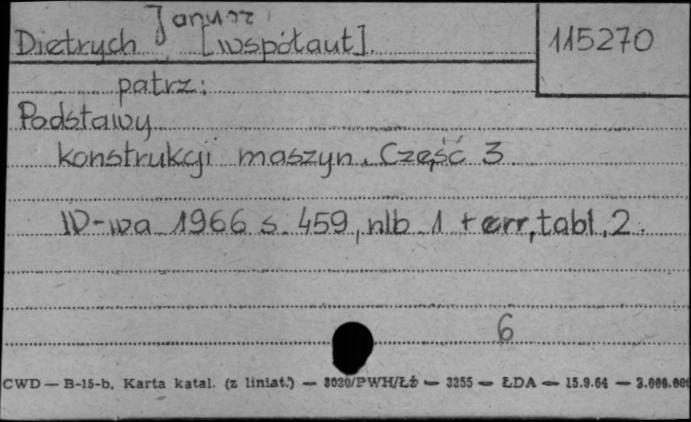 Dietrych Janusz [współaut].
115270
patrz:
Podstawy
konstrukcji maszyn. Część 3
W-wa 1966 s. 459, nlb 1 + err, tabl. 2.
6
CWD — B-15-b. Karta katal. (z liniat.) — 3020/PWH/Łż — 3255 — ŁDA — 15.9.64 — 3.000.000